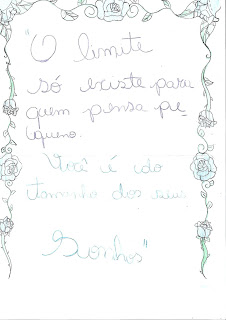 "O limite
só existe para
quem pensa pe-
queno.
Você é do
tamanho dos seus
Sonhos"